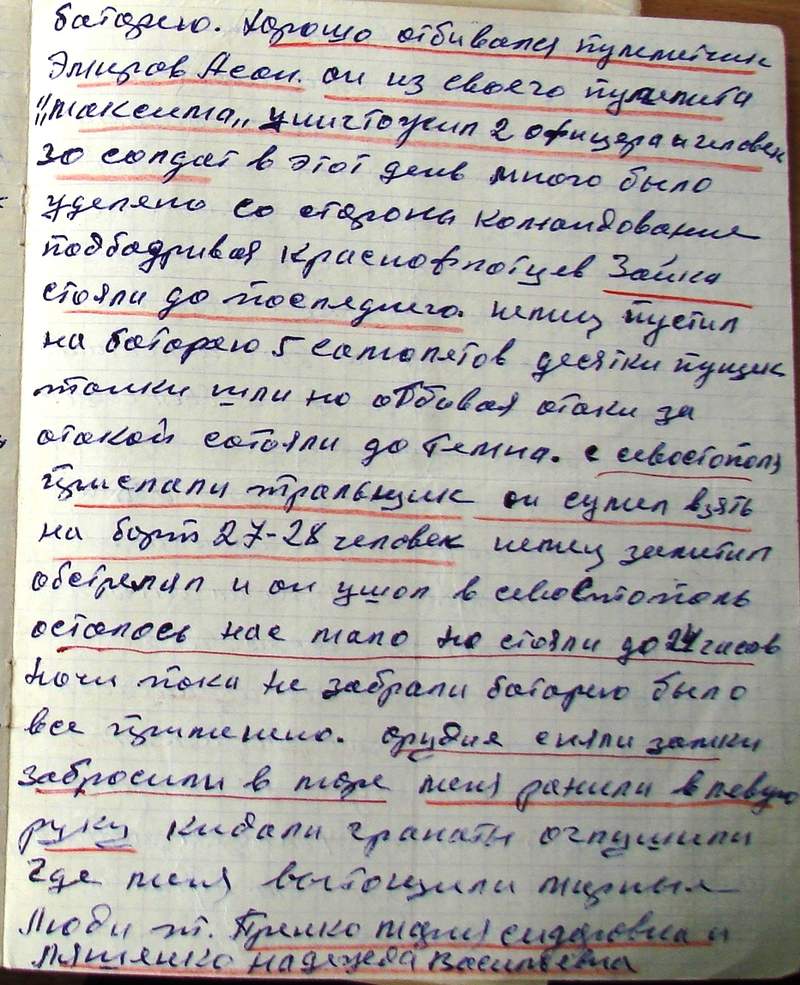 батарею. Хорошо отбивался пулеметчик
Эмиров Асан. он из своего пулемета
"максима" уничтожил 2 офицера и человек
30 солдат в этот день много было
уделяно со стороны командование
подбадривая краснофлотцев Заика
стояли до последнего. немец пустил
на батарею 5 самолетов десятки пущик
танки шли но отбивая атаки за
атакой сотояли до темна. с севостополя
прислали тральщик он сумел взять
на борт 27-28 человек немец заметил
обстрелял и он ушол в севостополь
осталось нас мало но стояли до 24 часов
ночи пока не забрали батарею было
все применено. орудия сняли замки
забросили в море меня ранили в левую
руку кидали гранаты оглушили
где меня вытощили мирныя
люди
мария сидоровна и
Ляшенко надежда Васильевна